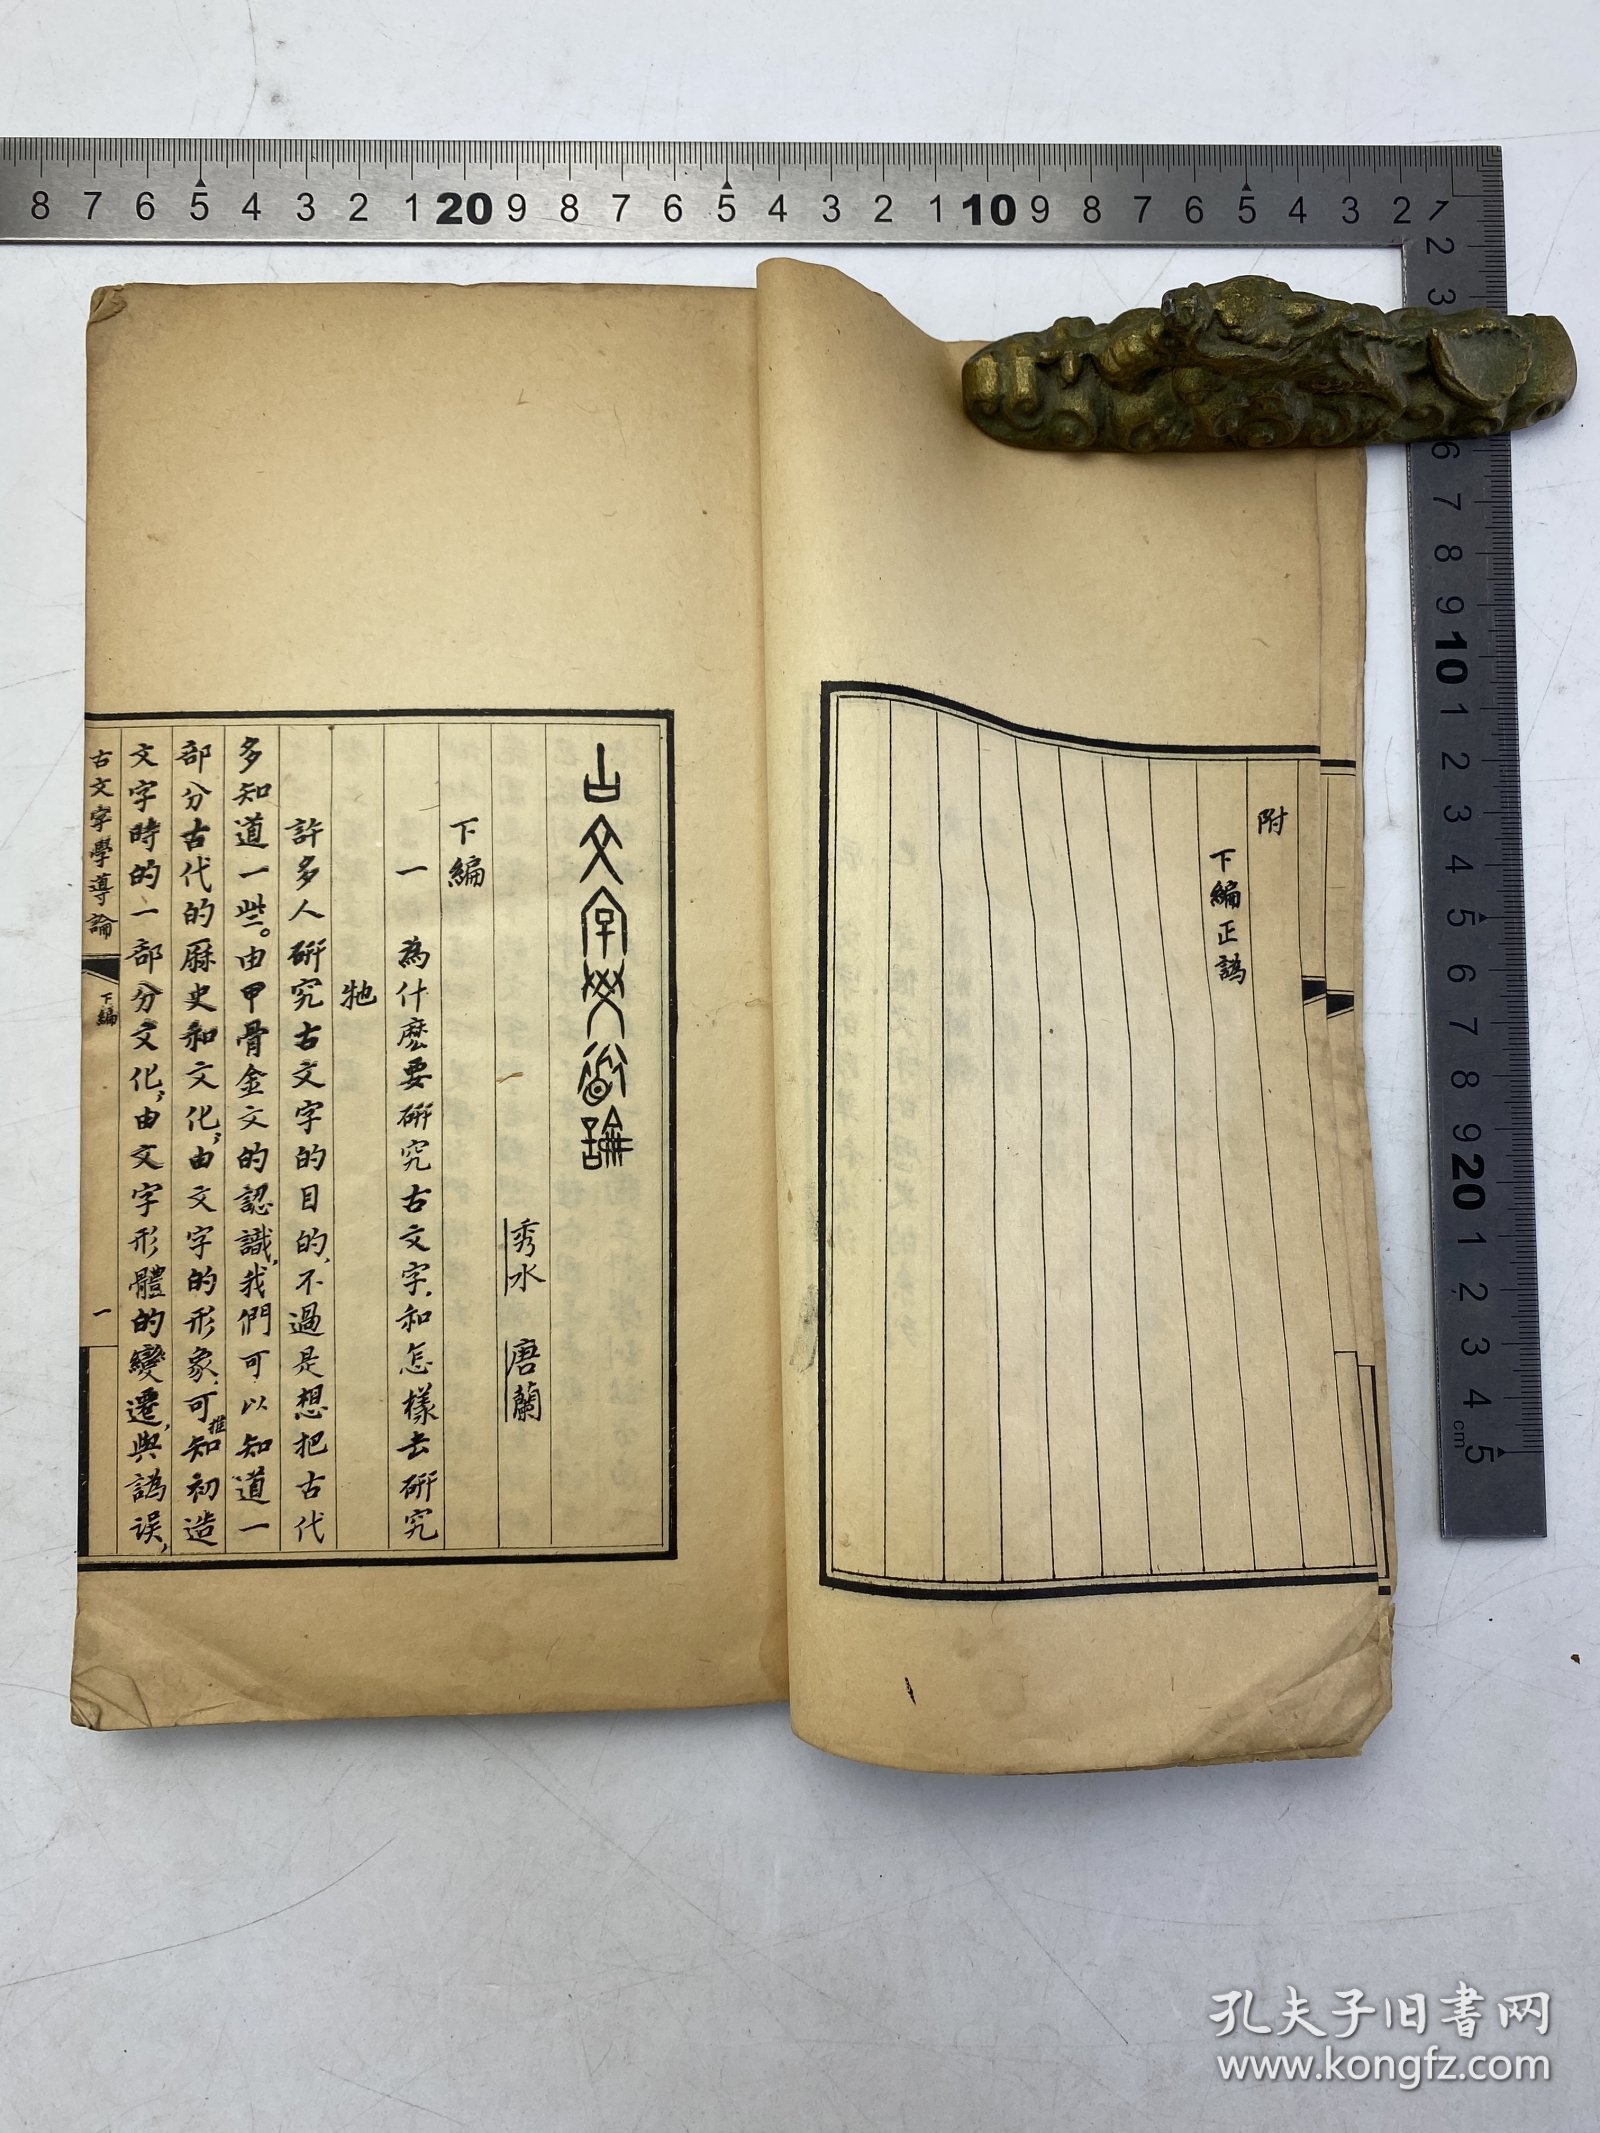 8 7 6 5 4 3 2 1 20 9 8 7 6 5 4 3 2 1 10 9 8 7 6 5 4 3 2 1
2 3 6 7 8 9 10 1 2 3 4 5 6 7 8 9 20 1 2 3 4 cm 5
附
下編正譌
古文字學導論
秀水 唐蘭
下編
一 為什麽要研究古文字,和怎樣去研究
牠
許多人研究古文字的目的,不過是想把古代
多知道一些。由甲骨金文的認識,我們可以知道一
部分古代的厤史和文化;由文字的形象,可推知初造
文字時的一部分文化;由文字形體的變遷,與譌误,
古文字學導論 下編 一
孔夫子旧書网
www.kongfz.com